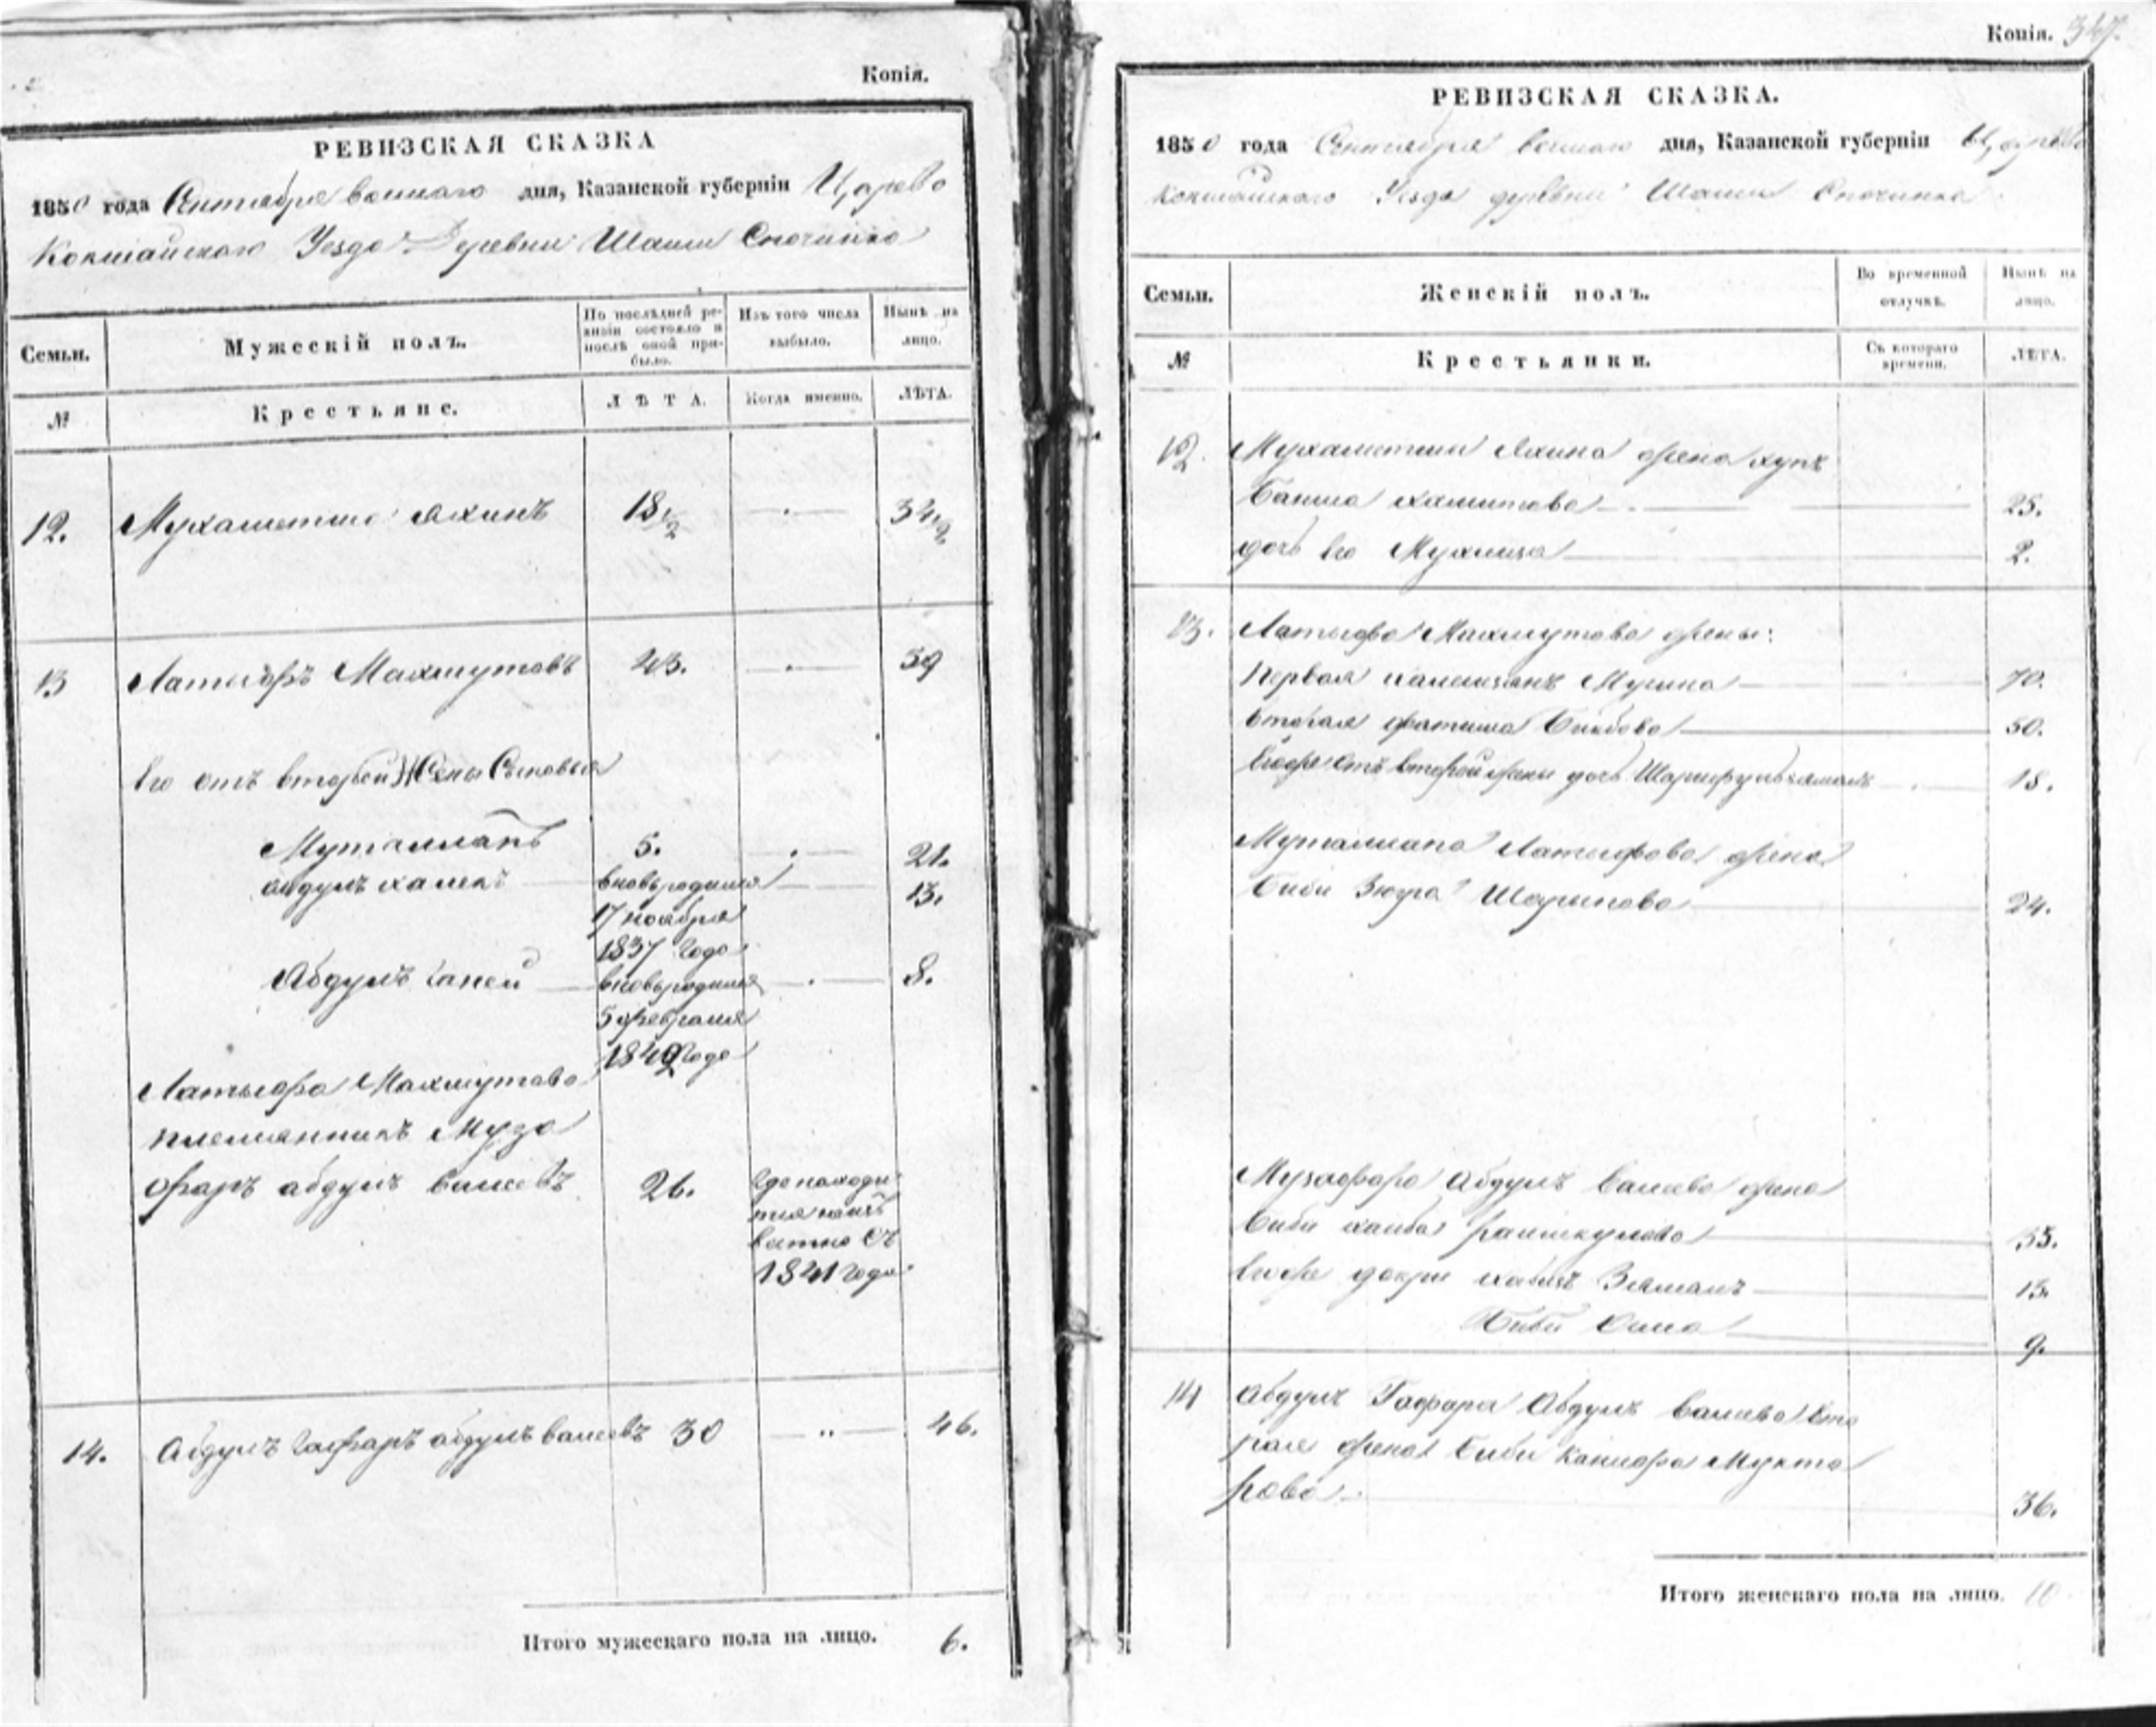 Копія.
РЕВИЗСКАЯ СКАЗКА
1850 года Октября восьмаго дня, Казанской губерніи Царево
Кокшайскаго Уезда Деревни Шаши
Семьи.
Мужескій полъ.
По послѣдней ре-
визіи состояло и
послѣ оной при-
было.
Изъ того числа
выбыло.
Нынѣ на
лицо.
№
Крестьяне.
ЛѢТА.
Когда именно.
ЛѢТА.
12. Мухаметша Яхинъ 18 1/2 34 1/2
13 Латыфъ Махмутовъ 43. 59
Его отъ второй Жены Сыновья
Муталлапъ 5. 21.
абдулъ халекъ вновь родился 13.
17 ноября
1837 Года
Абдулъ Ганей вновь родился 8.
5 февраля
1842 Года
Латыфа Махмутова
племянникъ Муза
фаръ абдулъ Валеевъ 26.
где находи-
тся
1841 Года
14. Абдулъ Гафаръ абдулъ валеевъ 30 46.
Итого мужескаго пола на лицо. 6.
Копія. 347.
РЕВИЗСКАЯ СКАЗКА.
1850 года Октября восьмаго дня, Казанской губерніи Царево
Кокшайскаго Уезда деревни Шаши
Семьи.
Женскій полъ.
Во временной
отлучкѣ.
Нынѣ на
лицо.
№
Крестьянки.
Съ котораго
времени.
ЛѢТА.
12. Мухаметши Яхина жена
хамитова 25.
дочь его 2.
13. Латыфа Махмутова жены:
Первая Мусина 70.
вторая фатима 50.
Егоже отъ второй жены дочь Шарифулъзямалъ 18.
Муталлапа Латыфова жена
Биби Зюгра Шарипова 24.
Музафара Абдулъ Валеева жена
Биби 35.
Егоже дочери Зямалъ 13.
Биби 9.
14 Абдулъ Гафара Абдулъ Валеева вто
рая жена Биби Мухта
рова 36.
Итого женскаго пола на лицо. 10